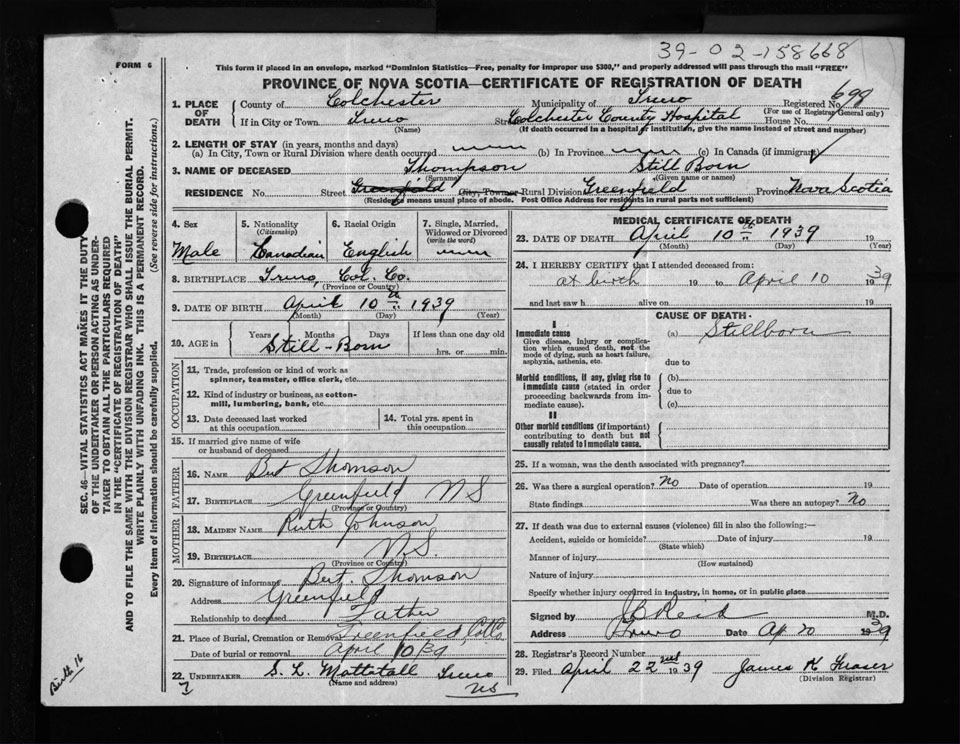 39-02-158668
FORM 6
This form if placed in an envelope, marked "Dominion Statistics—Free, penalty for improper use $300," and properly addressed will pass through the mail "FREE"
PROVINCE OF NOVA SCOTIA—CERTIFICATE OF REGISTRATION OF DEATH
1. PLACE OF DEATH County of Colchester Municipality of Truro Registered No. 698
(For use of Registrar General only)
If in City or Town Truro Street Colchester County Hospital House No.
(Name) (If death occurred in a hospital or institution, give the name instead of street and number)
2. LENGTH OF STAY (in years, months and days)
(a) In City, Town or Rural Division where death occurred (b) In Province (c) In Canada (if immigrant)
3. NAME OF DECEASED Thompson Still Born
(Surname) (Given name or names)
RESIDENCE No. Street Greenfield City, Town or Rural Division Greenfield Province Nova Scotia
(Residence means usual place of abode. Post Office Address for residents in rural parts not sufficient)
4. Sex 5. Nationality (Citizenship) 6. Racial Origin 7. Single, Married, Widowed or Divorced (write the word)
Male Canadian English
8. BIRTHPLACE Truro, Col. Co.
(Province or Country)
9. DATE OF BIRTH April 10th 1939
(Month) (Day) (Year)
10. AGE IN Years Months Days If less than one day old
Still-Born hrs. or min.
OCCUPATION
11. Trade, profession or kind of work as spinner, teamster, office clerk, etc.
12. Kind of industry or business, as cotton-mill, lumbering, bank, etc.
13. Date deceased last worked at this occupation
14. Total yrs. spent in this occupation
15. If married give name of wife or husband of deceased
FATHER
16. NAME Bert Thomson
17. BIRTHPLACE Greenfield NS
(Province or Country)
MOTHER
18. MAIDEN NAME Ruth Johnson
19. BIRTHPLACE N.S.
(Province or Country)
20. Signature of informant Bert. Thomson
Address Greenfield
Relationship to deceased Father
21. Place of Burial, Cremation or Removal Greenfield Col Co
Date of burial or removal April 10 39
22. UNDERTAKER S. L. Mattatall Truro
(Name and address) NS
7
MEDICAL CERTIFICATE OF DEATH
23. DATE OF DEATH April 10th 1939 19
(Month) (Day) (Year)
24. I HEREBY CERTIFY that I attended deceased from:
at birth 19 to April 10 1939
and last saw h alive on 19
CAUSE OF DEATH
I
Immediate cause (a) Stillborn
Give disease, injury or complication which caused death, not the mode of dying, such as heart failure, asphyxia, asthenia, etc.
due to
Morbid conditions, if any, giving rise to immediate cause (stated in order proceeding backwards from immediate cause).
(b)
due to
(c)
II
Other morbid conditions (if important) contributing to death but not causally related to immediate cause.
25. If a woman, was the death associated with pregnancy?
26. Was there a surgical operation? No Date of operation 19
State findings Was there an autopsy? No
27. If death was due to external causes (violence) fill in also the following:—
Accident, suicide or homicide? Date of injury 19
(State which)
Manner of injury
(How sustained)
Nature of injury
Specify whether injury occurred in industry, in home, or in public place
Signed by Reid M.D.
Address Truro Date Ap 20 1939
28. Registrar's Record Number
29. Filed April 22nd 1939 James K Fraser
(Division Registrar)
SEC. 46—VITAL STATISTICS ACT MAKES IT THE DUTY
OF THE UNDERTAKER OR PERSON ACTING AS UNDER-
TAKER TO OBTAIN ALL THE PARTICULARS REQUIRED
IN THE "CERTIFICATE OF REGISTRATION OF DEATH"
AND TO FILE THE SAME WITH THE DIVISION REGISTRAR WHO SHALL ISSUE THE BURIAL PERMIT.
WRITE PLAINLY WITH UNFADING INK. THIS IS A PERMANENT RECORD.
Every item of Information should be carefully supplied. (See reverse side for instructions.)
Birth 16